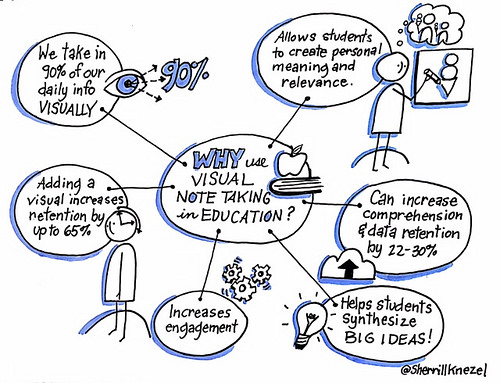 We take in
90% of our
daily info
VISUALLY
90%
Allows students
to create personal
meaning and
relevance.
WHY use
VISUAL
NOTE TAKING
in EDUCATION?
Adding a
visual increases
retention by
up to 65%
Can increase
comprehension
& data retention
by 22-30%
Increases
engagement
Helps students
synthesize
BIG IDEAS!
@SherrillKnezel